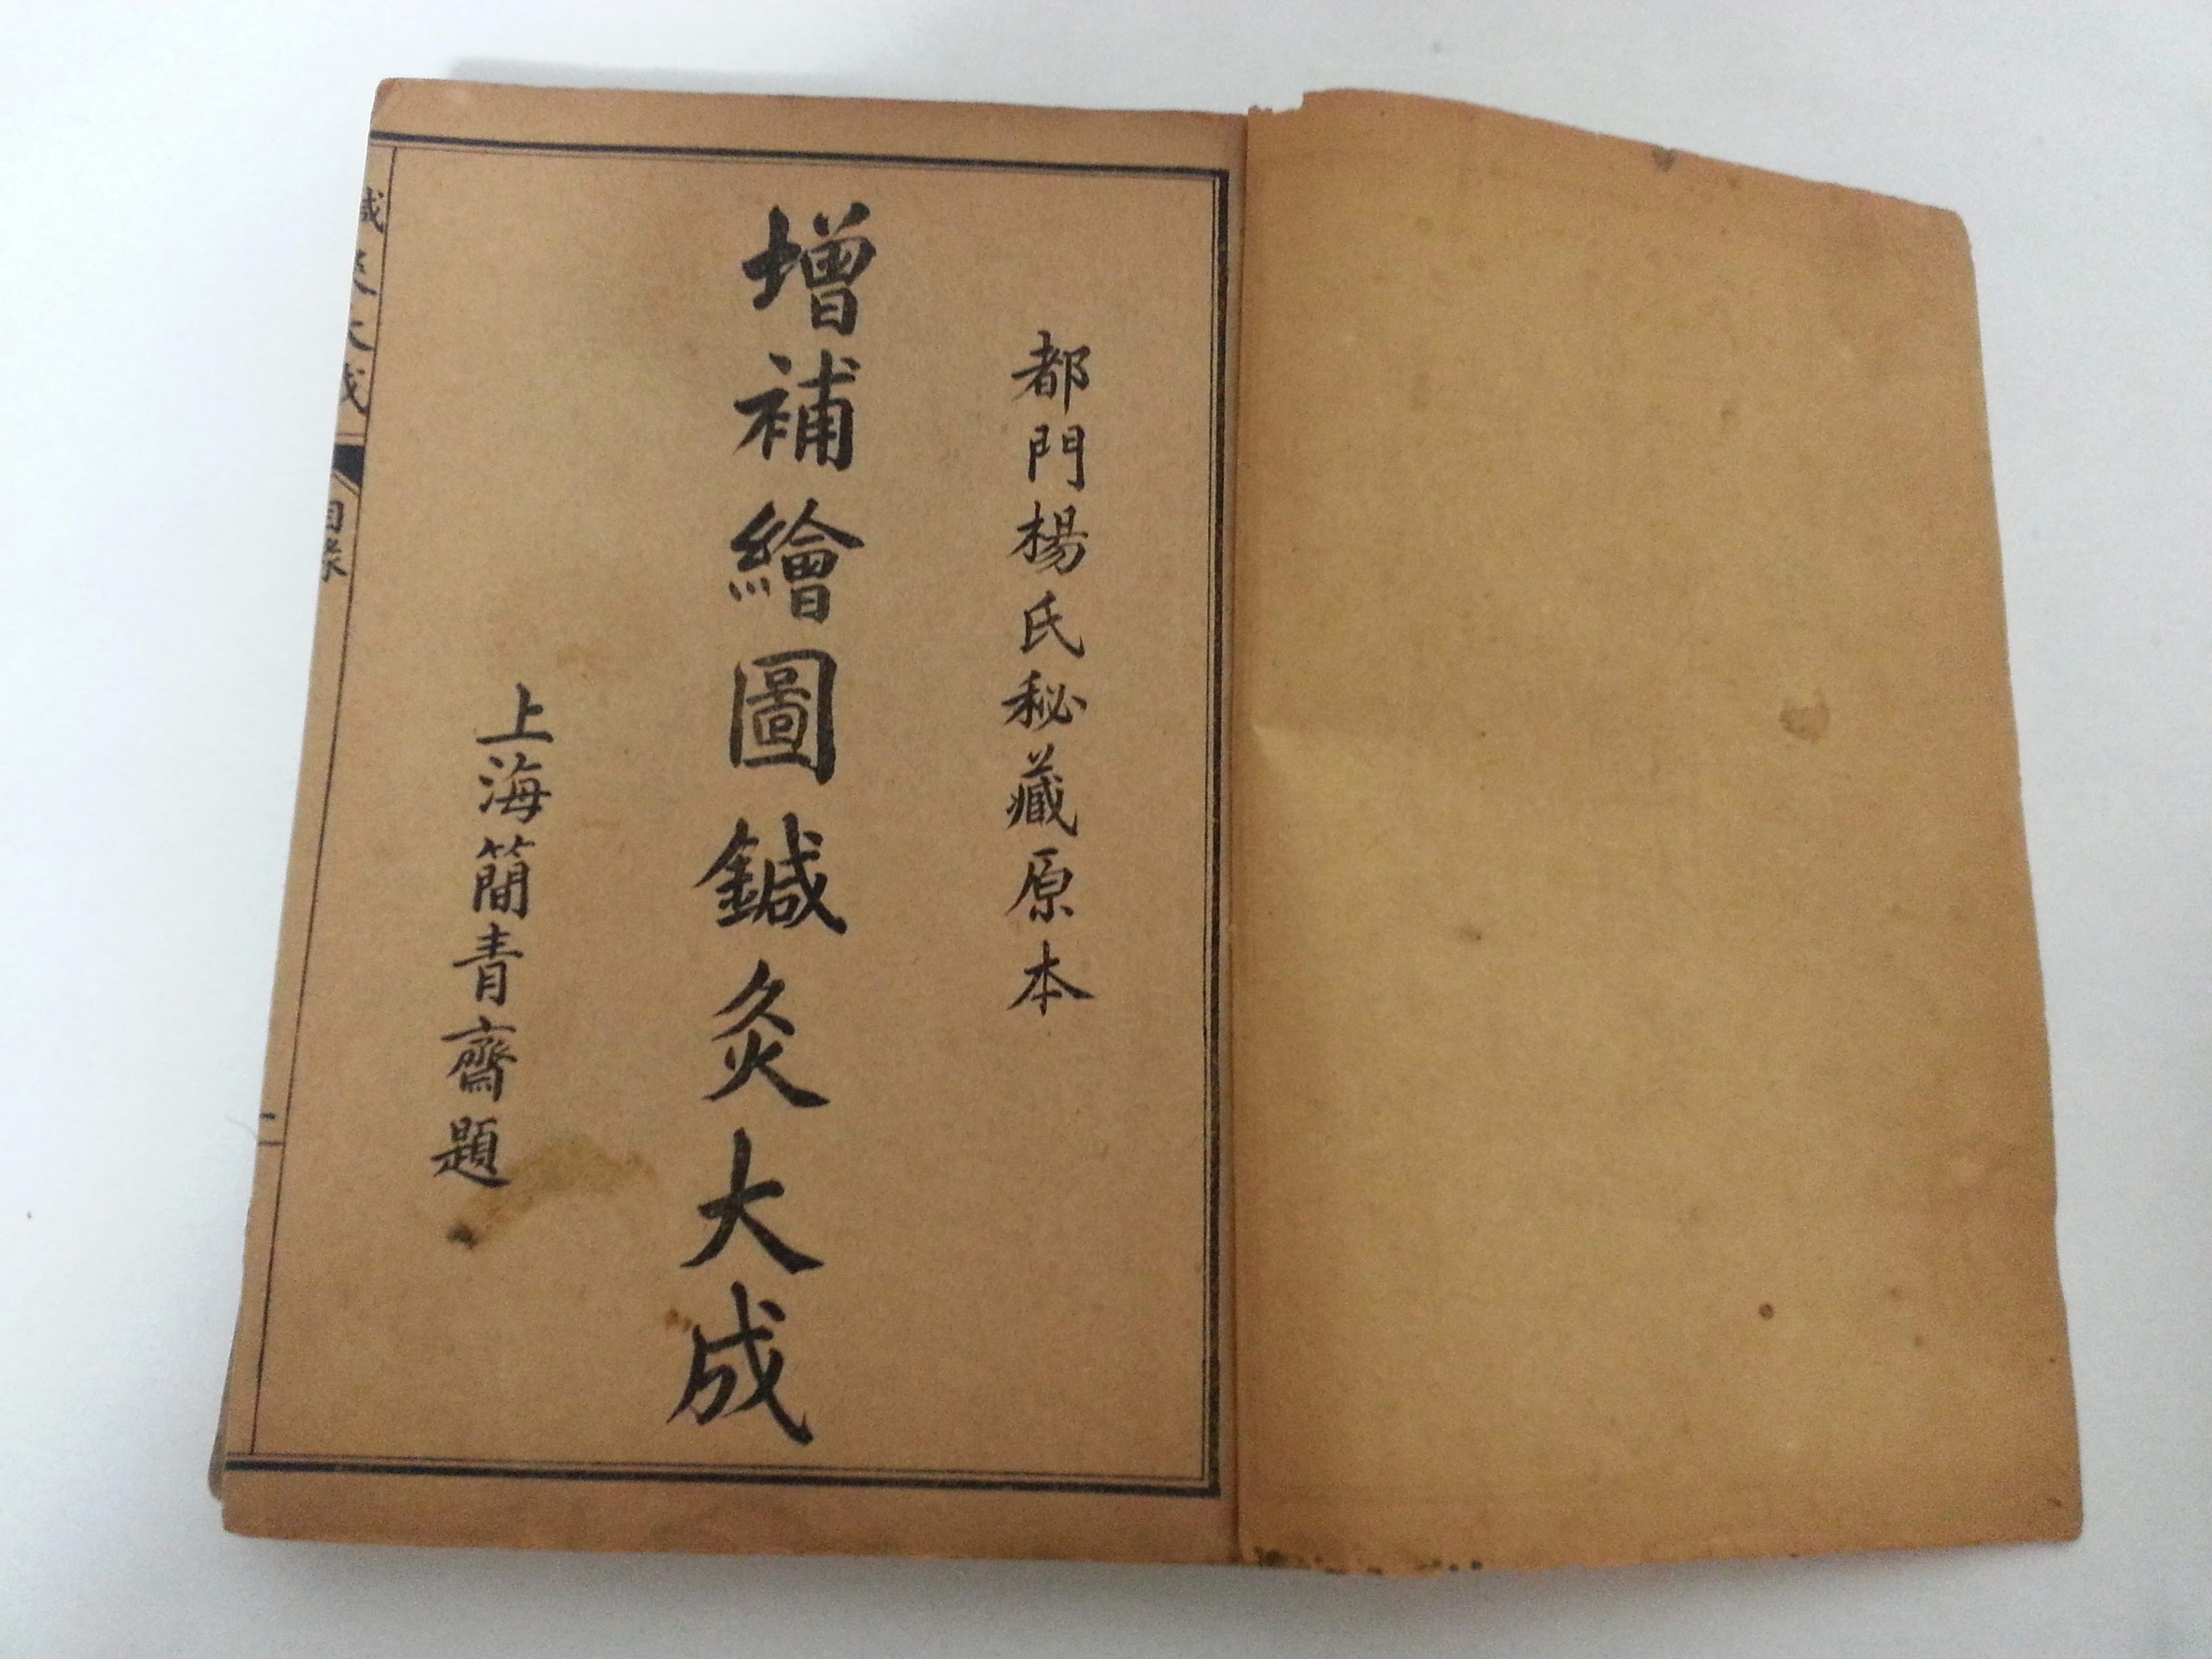 都門楊氏秘藏原本
增補繪圖鍼灸大成
上海簡青齋題
鍼灸大成
目錄
一